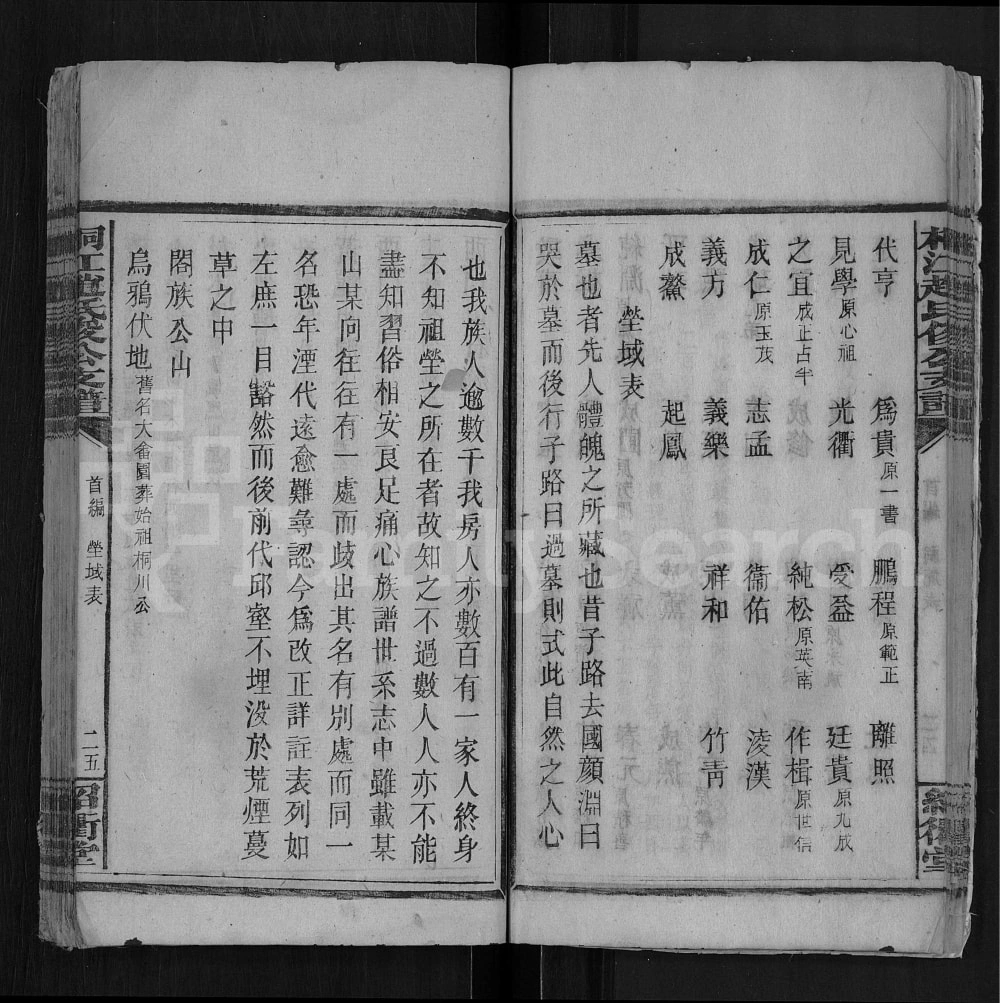 代亨　為貴原一書　鵬程原範正　離照
見學原心祖　光衢　受益　廷貴原九成
之宜成正占半　純松原英南　作楫原世信
成仁原玉茂　志孟　衞佑　淩漢
義方　義樂　祥和　竹靑
成鰲　起鳳
塋域表
墓也者先人體魄之所藏也昔子路去國顏淵曰
哭於墓而後行子路曰過墓則式此自然之人心
也我族人逾數千我房人亦數百有一家人終身
不知祖塋之所在者故知之不過數人人亦不能
盡知習俗相安良足痛心族譜世系志中雖載某
山某向往往有一處而歧出其名有別處而同一
名恐年湮代遠愈難尋認今爲改正詳註表列如
左庶一目豁然而後前代邱壑不埋没於荒煙蔓
草之中
閤族公山
烏鴉伏地舊名大畬園葬始祖桐川公
桐江趙氏俊公支譜
首編　塋域表
二五
紹衢堂